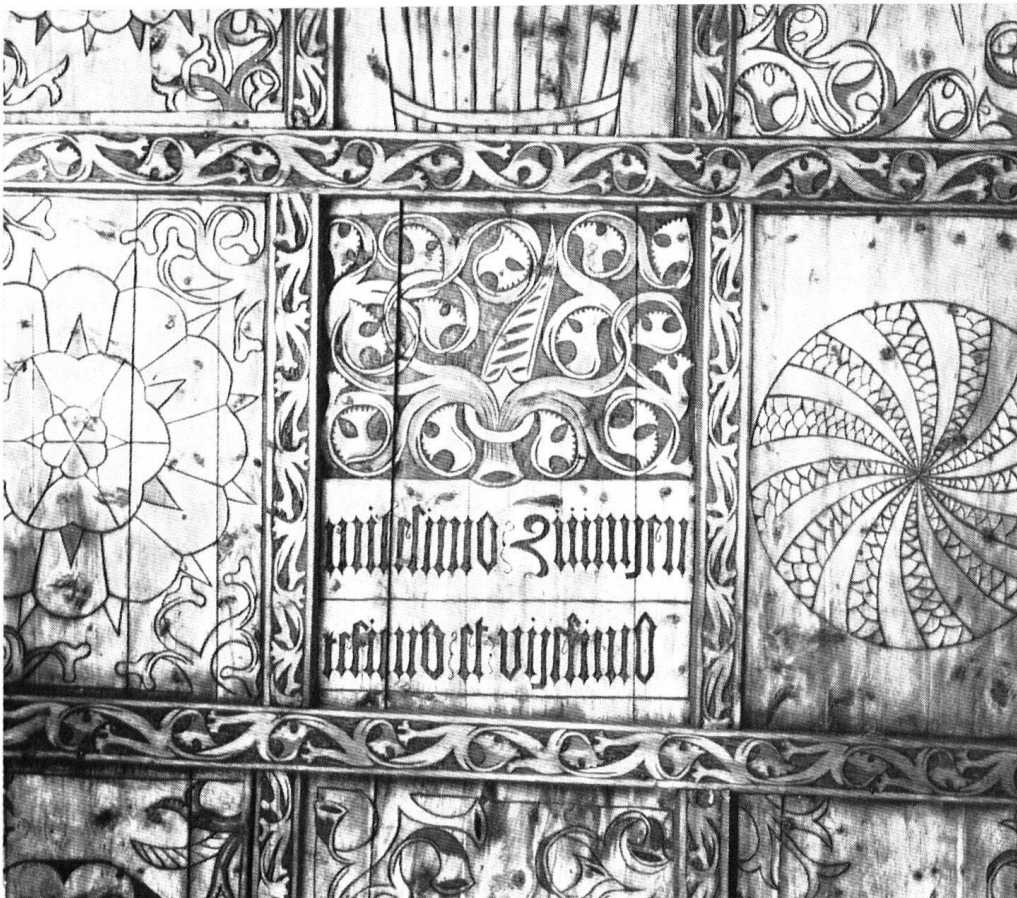 milesimo : Quingen
tesimo : et vigesimo